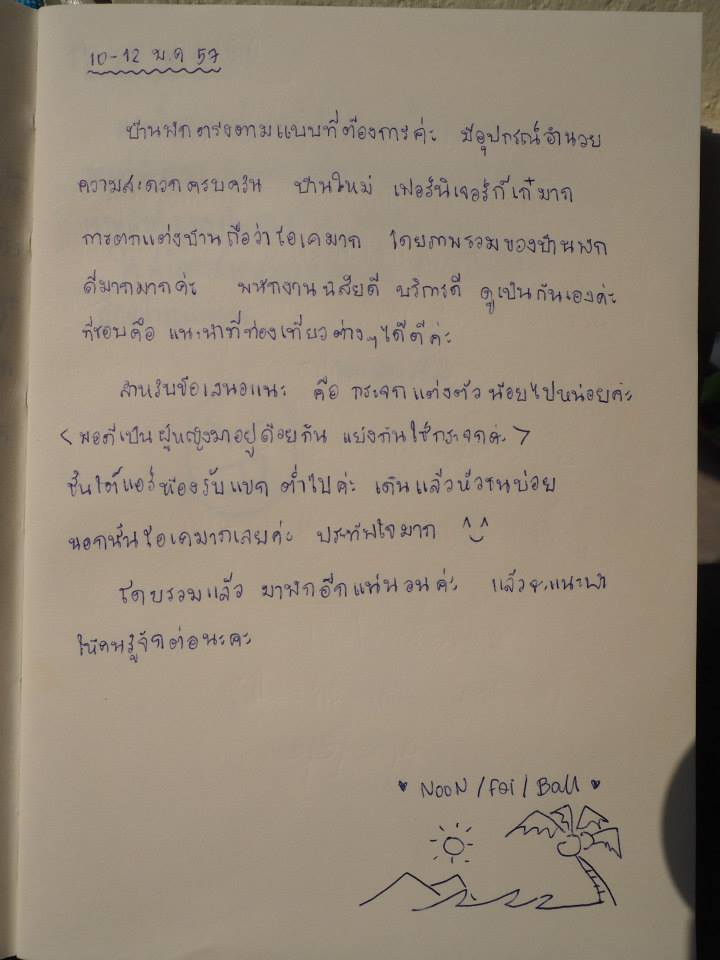 10-12 พ.ค 57
บ้านพักตรงตามแบบที่ต้องการค่ะ มีอุปกรณ์อำนวย
ความสะดวกครบครัน บ้านใหม่ เฟอร์นิเจอร์ก็เก๋มาก
การตกแต่งบ้านถือว่าโอเคมาก โดยภาพรวมของบ้านพัก
ดีมากมากค่ะ พนักงานนิสัยดี บริการดี ดูเป็นกันเองค่ะ
ที่ชอบคือ แนะนำที่ท่องเที่ยวต่างๆ ได้ดีค่ะ
สำหรับข้อเสนอแนะ คือ กระจกแต่งตัวน้อยไปหน่อยค่ะ
< พอดีเป็นผู้หญิงมาอยู่ด้วยกัน แย่งกันใช้กระจกค่ะ >
ชั้นใต้แอร์ห้องรับแขก ต่ำไปค่ะ เดินแล้วหัวชนบ่อย
นอกนั้นโอเคมากเลยค่ะ ประทับใจมาก ^‿^
โดยรวมแล้ว มาพักอีกแน่นอนค่ะ แล้วจะแนะนำ
ให้คนรู้จักต่อนะคะ
♥ NOON / Fai / Ball ♥